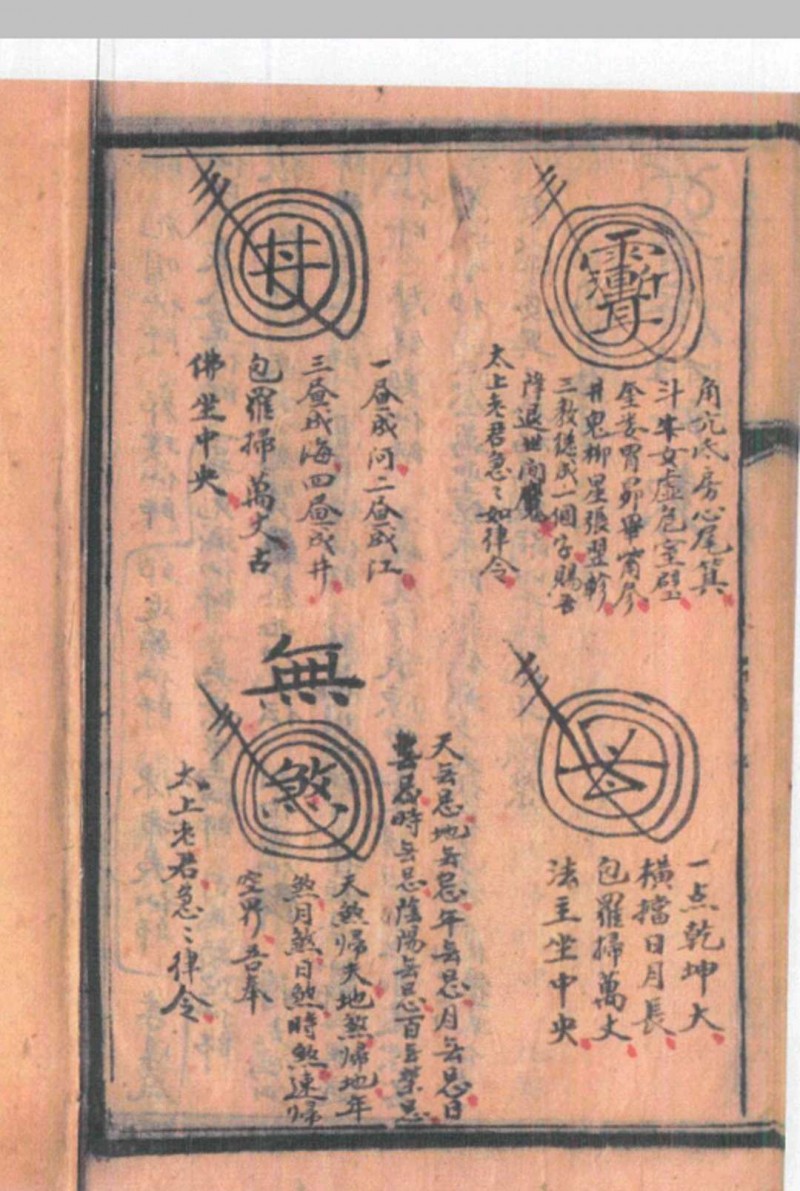 角亢氐房心尾箕
斗牛女虛危室璧
奎婁胃昴畢觜參
井鬼柳星張翌軫
三教總成一個字賜吾
降退世間魔
太上老君急〻如律令
井
一昼成河二昼成江
三昼成海四昼成井
包羅掃萬丈古
佛坐中央
一点乾坤大
橫擋日月長
包羅掃萬丈
法主坐中央
無
煞
天無忌地無忌年無忌月無忌日
無忌時無忌陰陽無忌百無禁忌
天煞歸天地煞歸地年
煞月煞日煞時煞速歸
空界吾奉
太上老君急〻律令